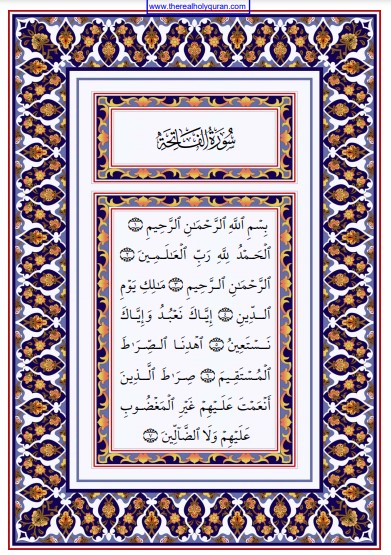 www.therealholyquran.com
سُورَةُ الفَاتِحَةِ
بِسۡمِ ٱللَّهِ ٱلرَّحۡمَـٰنِ ٱلرَّحِيمِ ١
ٱلۡحَمۡدُ لِلَّهِ رَبِّ ٱلۡعَـٰلَمِينَ ٢
ٱلرَّحۡمَـٰنِ ٱلرَّحِيمِ ٣ مَـٰلِكِ يَوۡمِ
ٱلدِّينِ ٤ إِيَّاكَ نَعۡبُدُ وَإِيَّاكَ
نَسۡتَعِينُ ٥ ٱهۡدِنَا ٱلصِّرَٰطَ
ٱلۡمُسۡتَقِيمَ ٦ صِرَٰطَ ٱلَّذِينَ
أَنۡعَمۡتَ عَلَيۡهِمۡ غَيۡرِ ٱلۡمَغۡضُوبِ
عَلَيۡهِمۡ وَلَا ٱلضَّآلِّينَ ٧